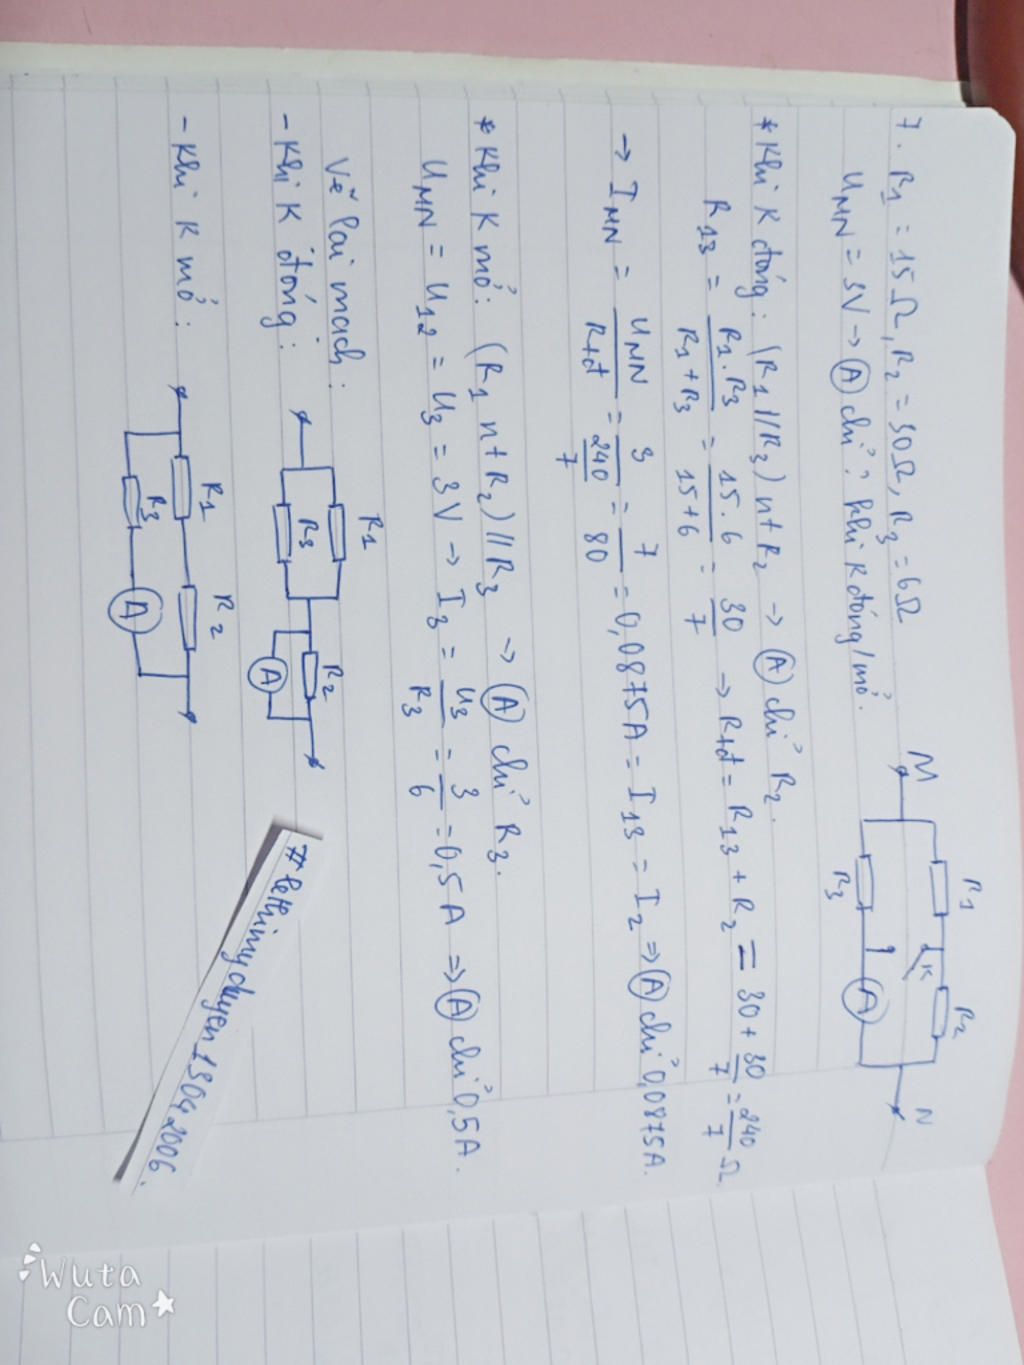 7. R1 = 15Ω, R2 = 30Ω, R3 = 6Ω
UMN = 3V → (A) chỉ? khi K đóng/mở.
M R1 K R2 N
R3 A
* Khi K đóng: (R1 // R3) nt R2 → (A) chỉ R2.
R13 = R1.R3 / R1+R3 = 15.6 / 15+6 = 30/7 → Rtđ = R13 + R2 = 30 + 30/7 = 240/7 Ω
→ IMN = UMN / Rtđ = 3 / 240/7 = 7/80 = 0,0875A = I13 = I2 ⇒ (A) chỉ 0,0875A.
* Khi K mở: (R1 nt R2) // R3 → (A) chỉ R3.
UMN = U12 = U3 = 3V → I3 = U3/R3 = 3/6 = 0,5A ⇒ (A) chỉ 0,5A.
Vẽ lại mạch:
- Khi K đóng:
R1
R3 R2
A
- Khi K mở:
R1 R2
R3 A
Wuta
Cam